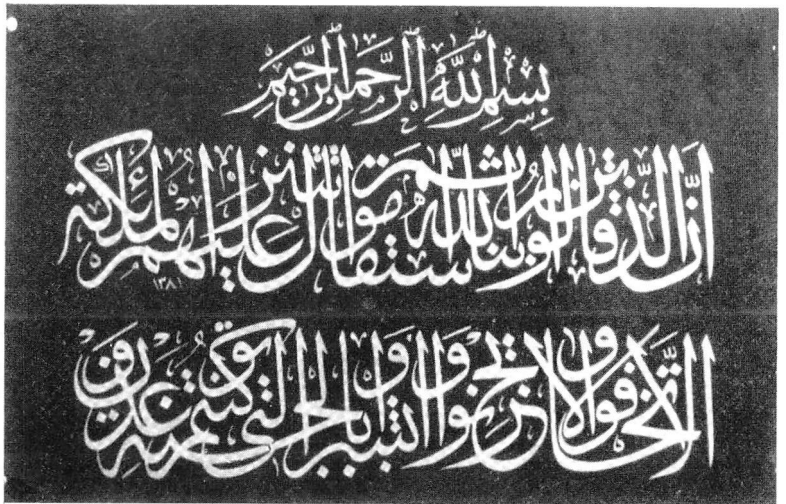 بسم الله الرحمن الرحيم
إن الذين قالوا ربنا الله ثم استقاموا تتنزل عليهم الملائكة
١٣٨١
ألا تخافوا ولا تحزنوا وأبشروا بالجنة التي كنتم توعدون